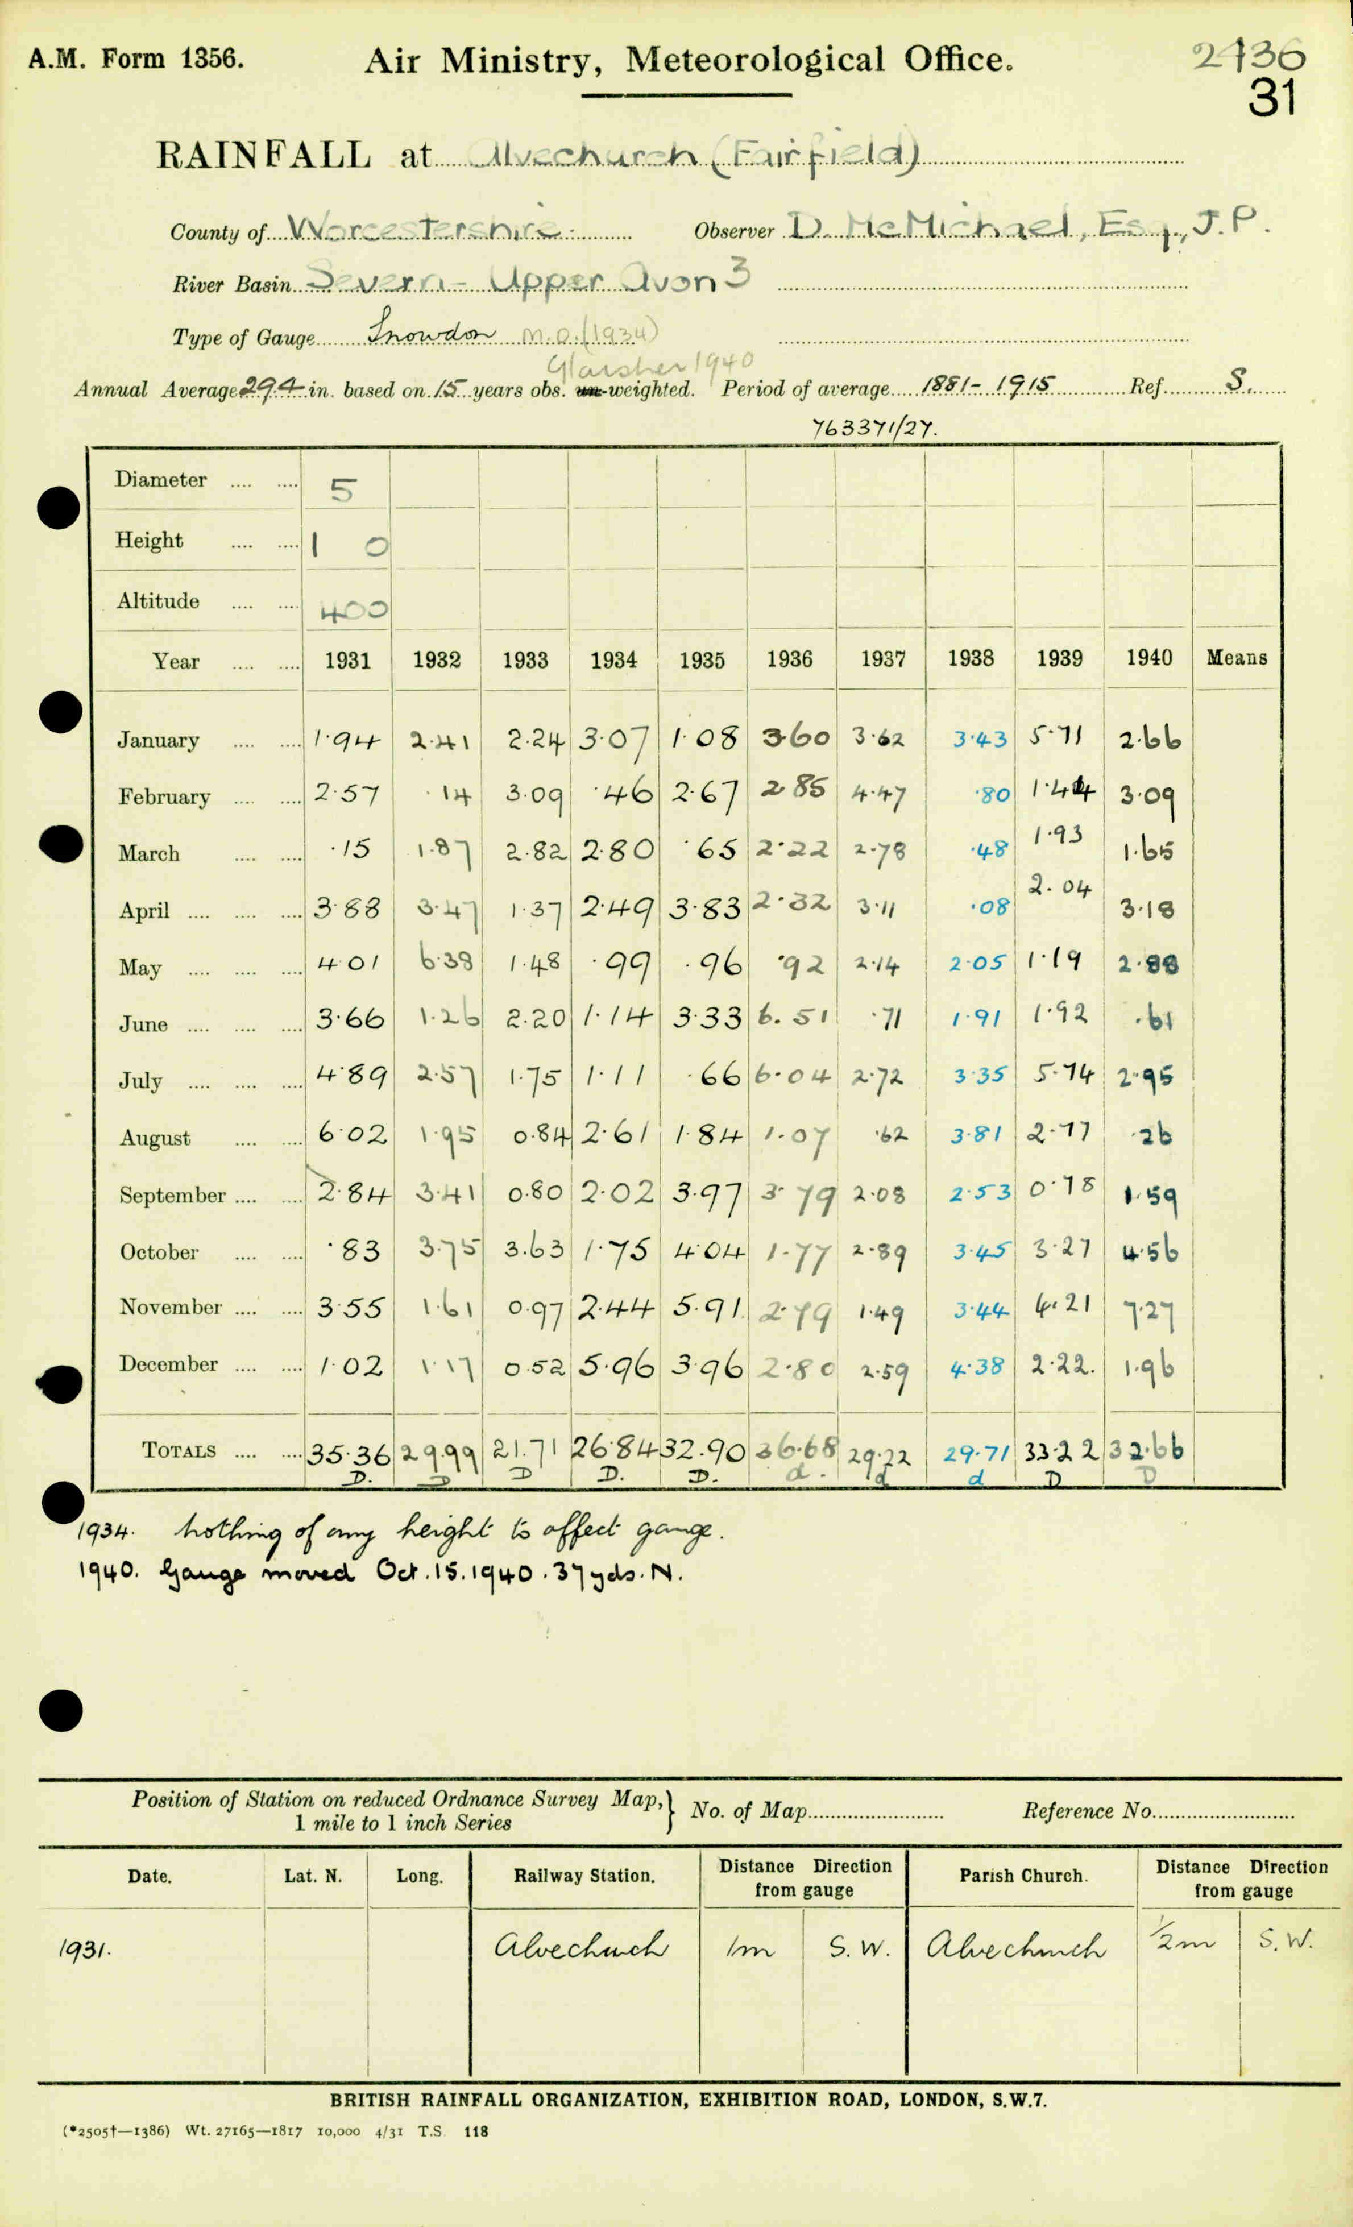 A.M. Form 1356.
Air Ministry, Meteorological Office.
2436
31
RAINFALL at Alvechurch (Fairfield)
County of Worcestershire. Observer D. McMichael, Esq., J.P.
River Basin Severn - Upper Avon 3
Type of Gauge Snowdon M.O. (1934)
Glaisher 1940
Annual Average 29.4 in. based on 15 years obs. un-weighted. Period of average 1881-1915 Ref. S.
763371/27.
Diameter .... .... 5
Height .... .... 1 0
Altitude .... .... 400
Year .... .... 1931 1932 1933 1934 1935 1936 1937 1938 1939 1940 Means
January .... .... 1.94 2.41 2.24 3.07 1.08 3.60 3.62 3.43 5.71 2.66
February .... .... 2.57 .14 3.09 .46 2.67 2.85 4.47 .80 1.44 3.09
March .... .... .15 1.87 2.82 2.80 .65 2.22 2.78 .48 1.93 1.65
April .... .... .... 3.88 3.47 1.37 2.49 3.83 2.32 3.11 .08 2.04 3.18
May .... .... .... 4.01 6.38 1.48 .99 .96 .92 2.14 2.05 1.19 2.88
June .... .... .... 3.66 1.26 2.20 1.14 3.33 6.51 .71 1.91 1.92 .61
July .... .... .... 4.89 2.57 1.75 1.11 .66 6.04 2.72 3.35 5.74 2.95
August .... .... 6.02 1.95 0.84 2.61 1.84 1.07 .62 3.81 2.77 .26
September .... .... 2.84 3.41 0.80 2.02 3.97 3.79 2.08 2.53 0.78 1.59
October .... .... .83 3.75 3.63 1.75 4.04 1.77 2.89 3.45 3.27 4.56
November .... .... 3.55 1.61 0.97 2.44 5.91 2.79 1.49 3.44 4.21 7.27
December .... .... 1.02 1.17 0.52 5.96 3.96 2.80 2.59 4.38 2.22. 1.96
TOTALS .... .... 35.36 29.99 21.71 26.84 32.90 36.68 29.22 29.71 33.22 32.66
D. D D D. D. d. d d D D
1934. Nothing of any height to affect gauge.
1940. Gauge moved Oct. 15. 1940. 37 yds. N.
Position of Station on reduced Ordnance Survey Map, } No. of Map Reference No.
1 mile to 1 inch Series
Date. Lat. N. Long. Railway Station. Distance Direction from gauge Parish Church. Distance Direction from gauge
1931. Alvechurch 1m S.W. Alvechurch ½m S.W.
BRITISH RAINFALL ORGANIZATION, EXHIBITION ROAD, LONDON, S.W.7.
(*2505†—1386) Wt. 27165—1817 10,000 4/31 T.S. 118